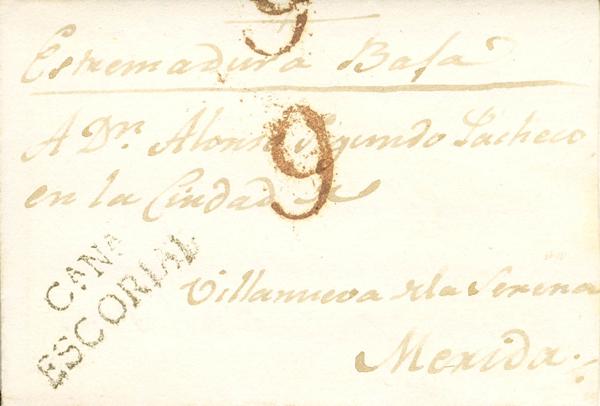 9
Estremadura Baja
A Dn. Alonso Segundo Pacheco,
9
en la Ciudad de
CANA
ESCORIAL
Villanueva de la Serena
Merida.